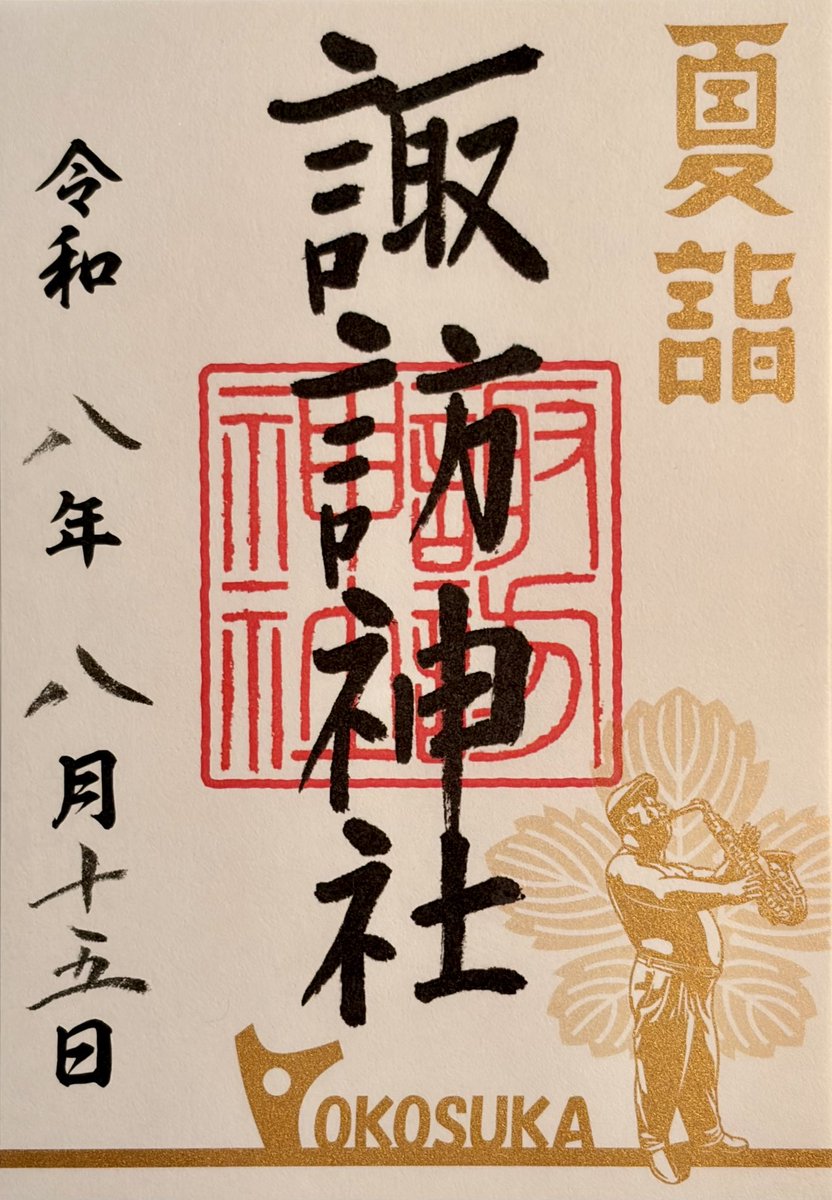 夏詣
諏訪神社
諏訪
神社
令和八年八月十五日
YOKOSUKA